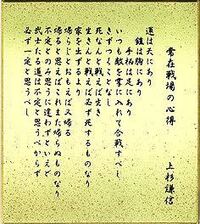 常在戦場の心得
上杉謙信
運は天にあり
鎧は胸にあり
手柄は足にあり
いつも敵を掌に入れて合戦すべし
きずつくことなし
死なんと戦えば生き
生きんと戦えば必ず死するものなり
家を出ずるより
帰らじとおもえば又帰る
帰ると思えばこれまた帰らぬものなり
不定とのみ思うに違わずといえば
武士たる道は不定と思うべからず
必ず一定と思うべし